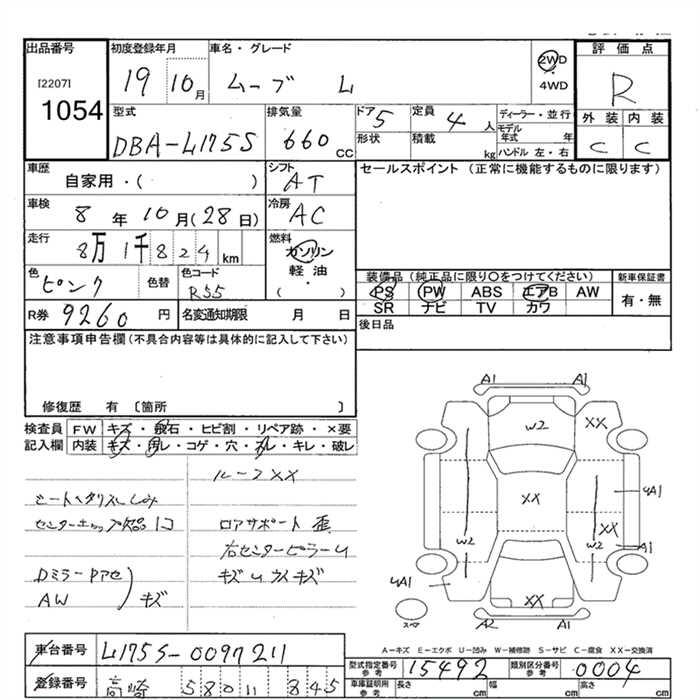 出品番号 初度登録年月 車名・グレード 評価点
[2207] 19 10月 ムーブ L 2WD・4WD R
1054
型式 排気量 ドア 5 定員 4人 ディーラー・並行 外装 内装
DBA-L175S 660cc 形状 積載 kg モデル年式 年 C C
ハンドル 左・右
車歴 シフト セールスポイント (正常に機能するものに限ります)
自家用・( ) AT
車検 冷房
8年10月(28日) AC
走行 燃料
8万1千824km ガソリン
軽油
・
( )
色 色替 色コード 装備品 (純正品に限り○をつけてください) 新車保証書
ピンク R55 PS PW ABS エアB AW 有・無
SR ナビ TV カワ
R券 9260円 名変通知期限 月 日 後日品
注意事項申告欄 (不具合内容等は具体的に記入して下さい)
修復歴 有 〔箇所 〕
検査員 FW キズ・飛石・ヒビ割・リペア跡・×要
記入欄 内装 キズ・汚レ・コゲ・穴・スレ・キレ・破レ
ルーフXX
シートヘタリスレしみ
センターキャップ欠品1コ ロアサポート 歪
右センターピラーU
Dミラー キズU
AW キズ
A1 A1
W2 XX
XX 4A1
W2 XX W2
A1
4A1 XX
スペア A2 A1
A-キズ E-エクボ U-凹み W-補修跡 S-サビ C-腐食 XX-交換済
車台番号 L175S-0097211
型式指定番号 参考 15492 類別区分番号 参考 0004
登録番号 高崎 580 11 845
車庫証明用 参考 長さ cm 幅 cm 高さ cm